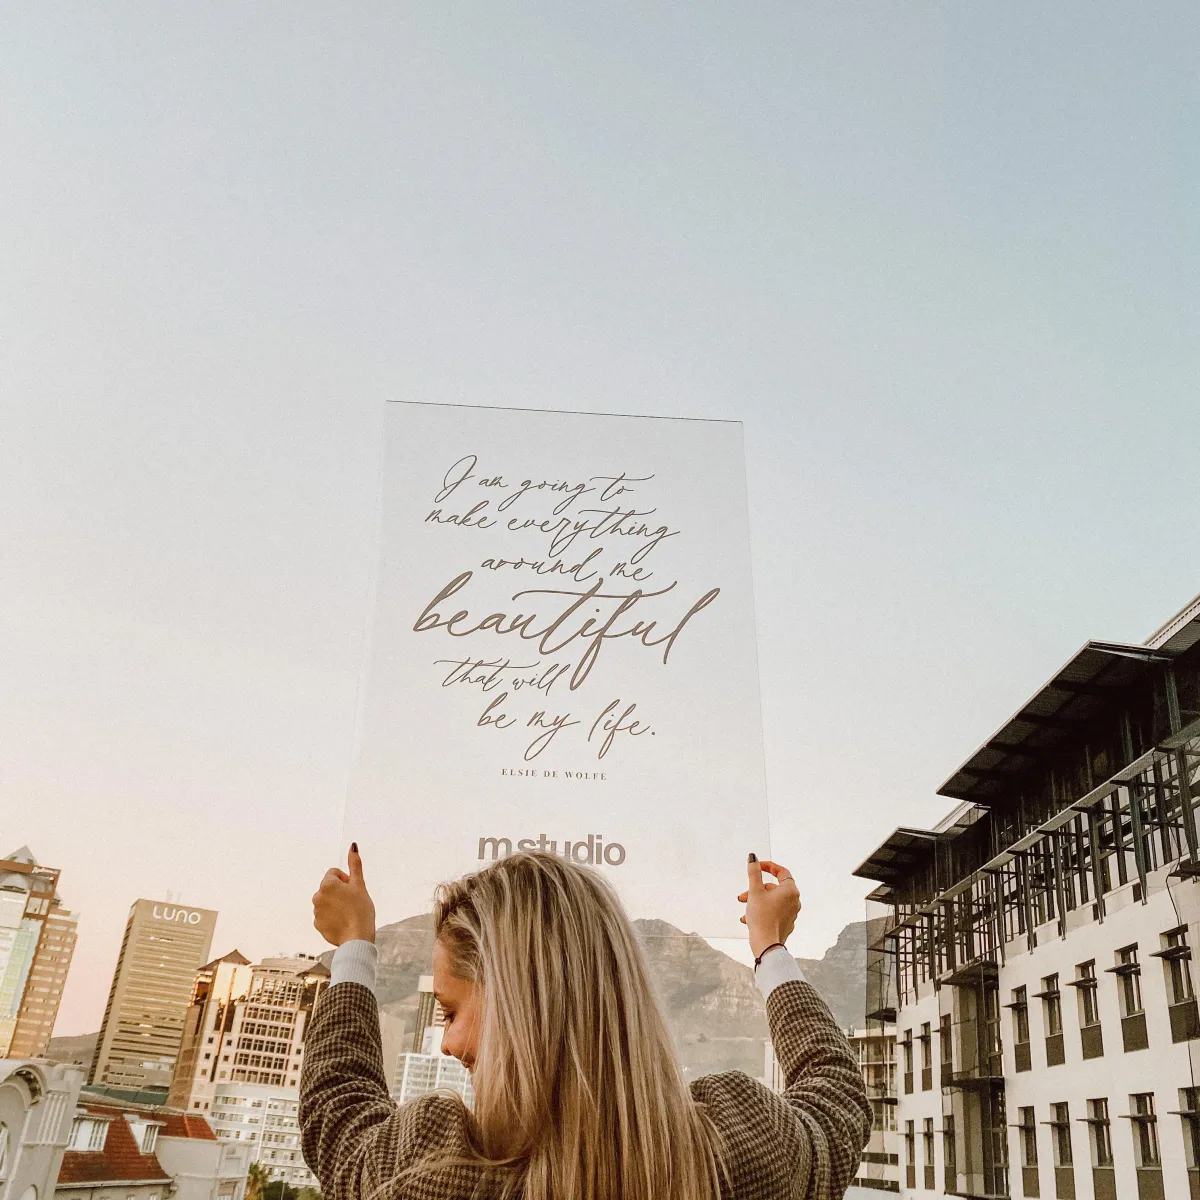 I am going to
make everything
around me
beautiful
that will
be my life.
ELSIE DE WOLFE
m studio
LUNO